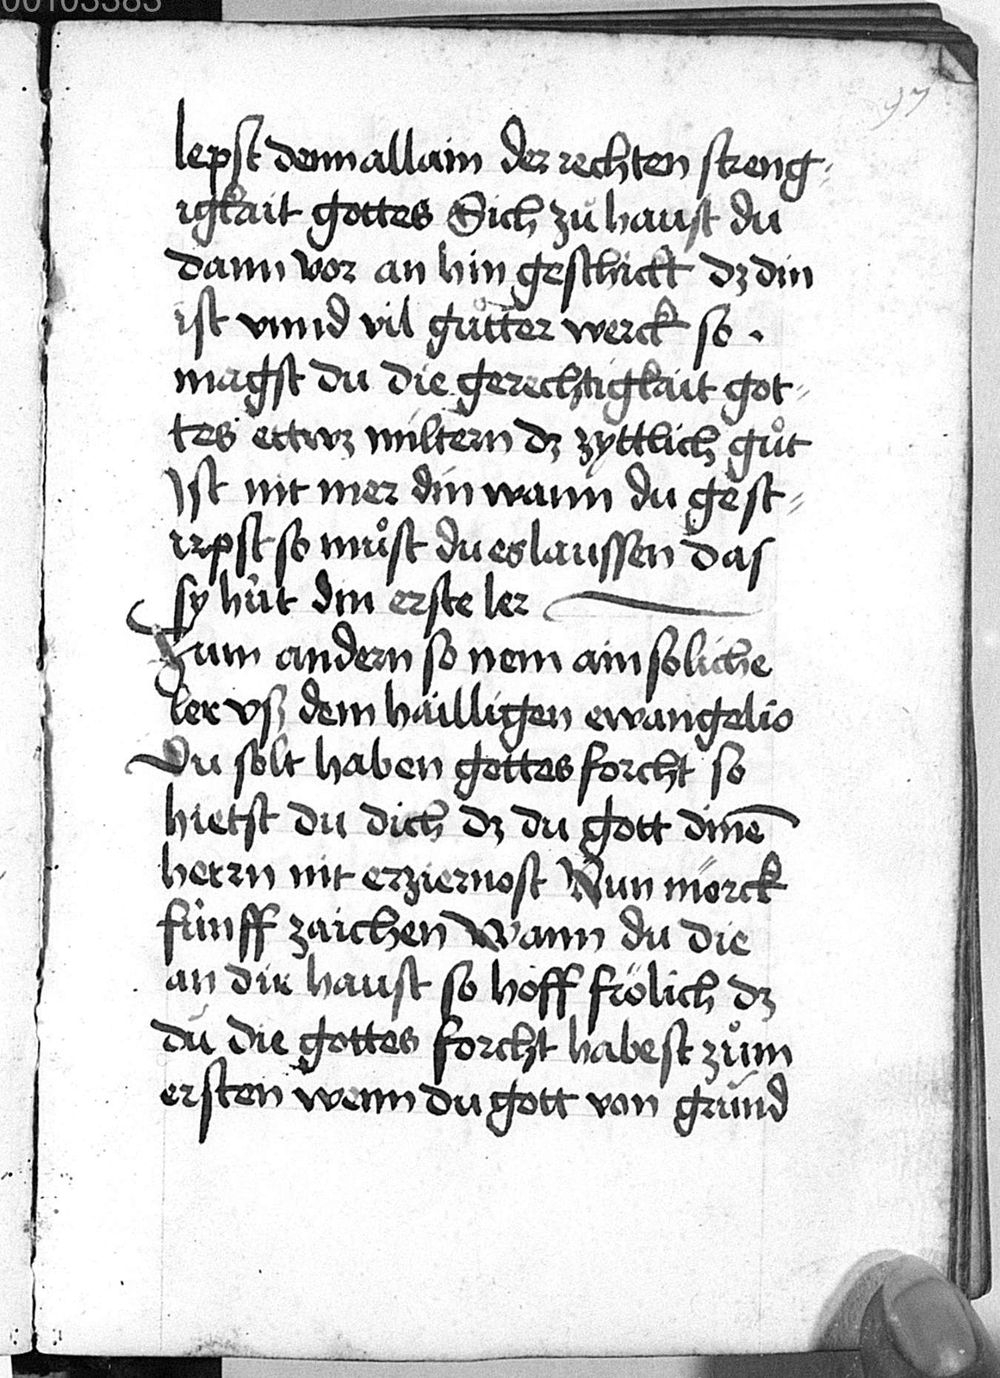 00103383
97
lepst denn allain der rechten streng-
igkait gottes Sich zů haust du
dann vor an hin geschickt dz din
ist vnnd vil gůtter werck so .
magst du die gerechtigkait got-
tes ettwz miltern dz zyttlich gůt
Ist nit mer din wann du gest-
irpst so můst du es laussen das
sy hůt din erste ler
Zum andern so nem ain soliche
ler vß dem hailligen ewangelio
Du solt haben gottes forcht so
hietst du dich dz du gott dinē
herrn nit erziernost Nun mörck
fünff zaichen Wann du die
an dir haust so hoff frölich dz
du die gottes forcht habest zům
ersten wenn du gott von grund